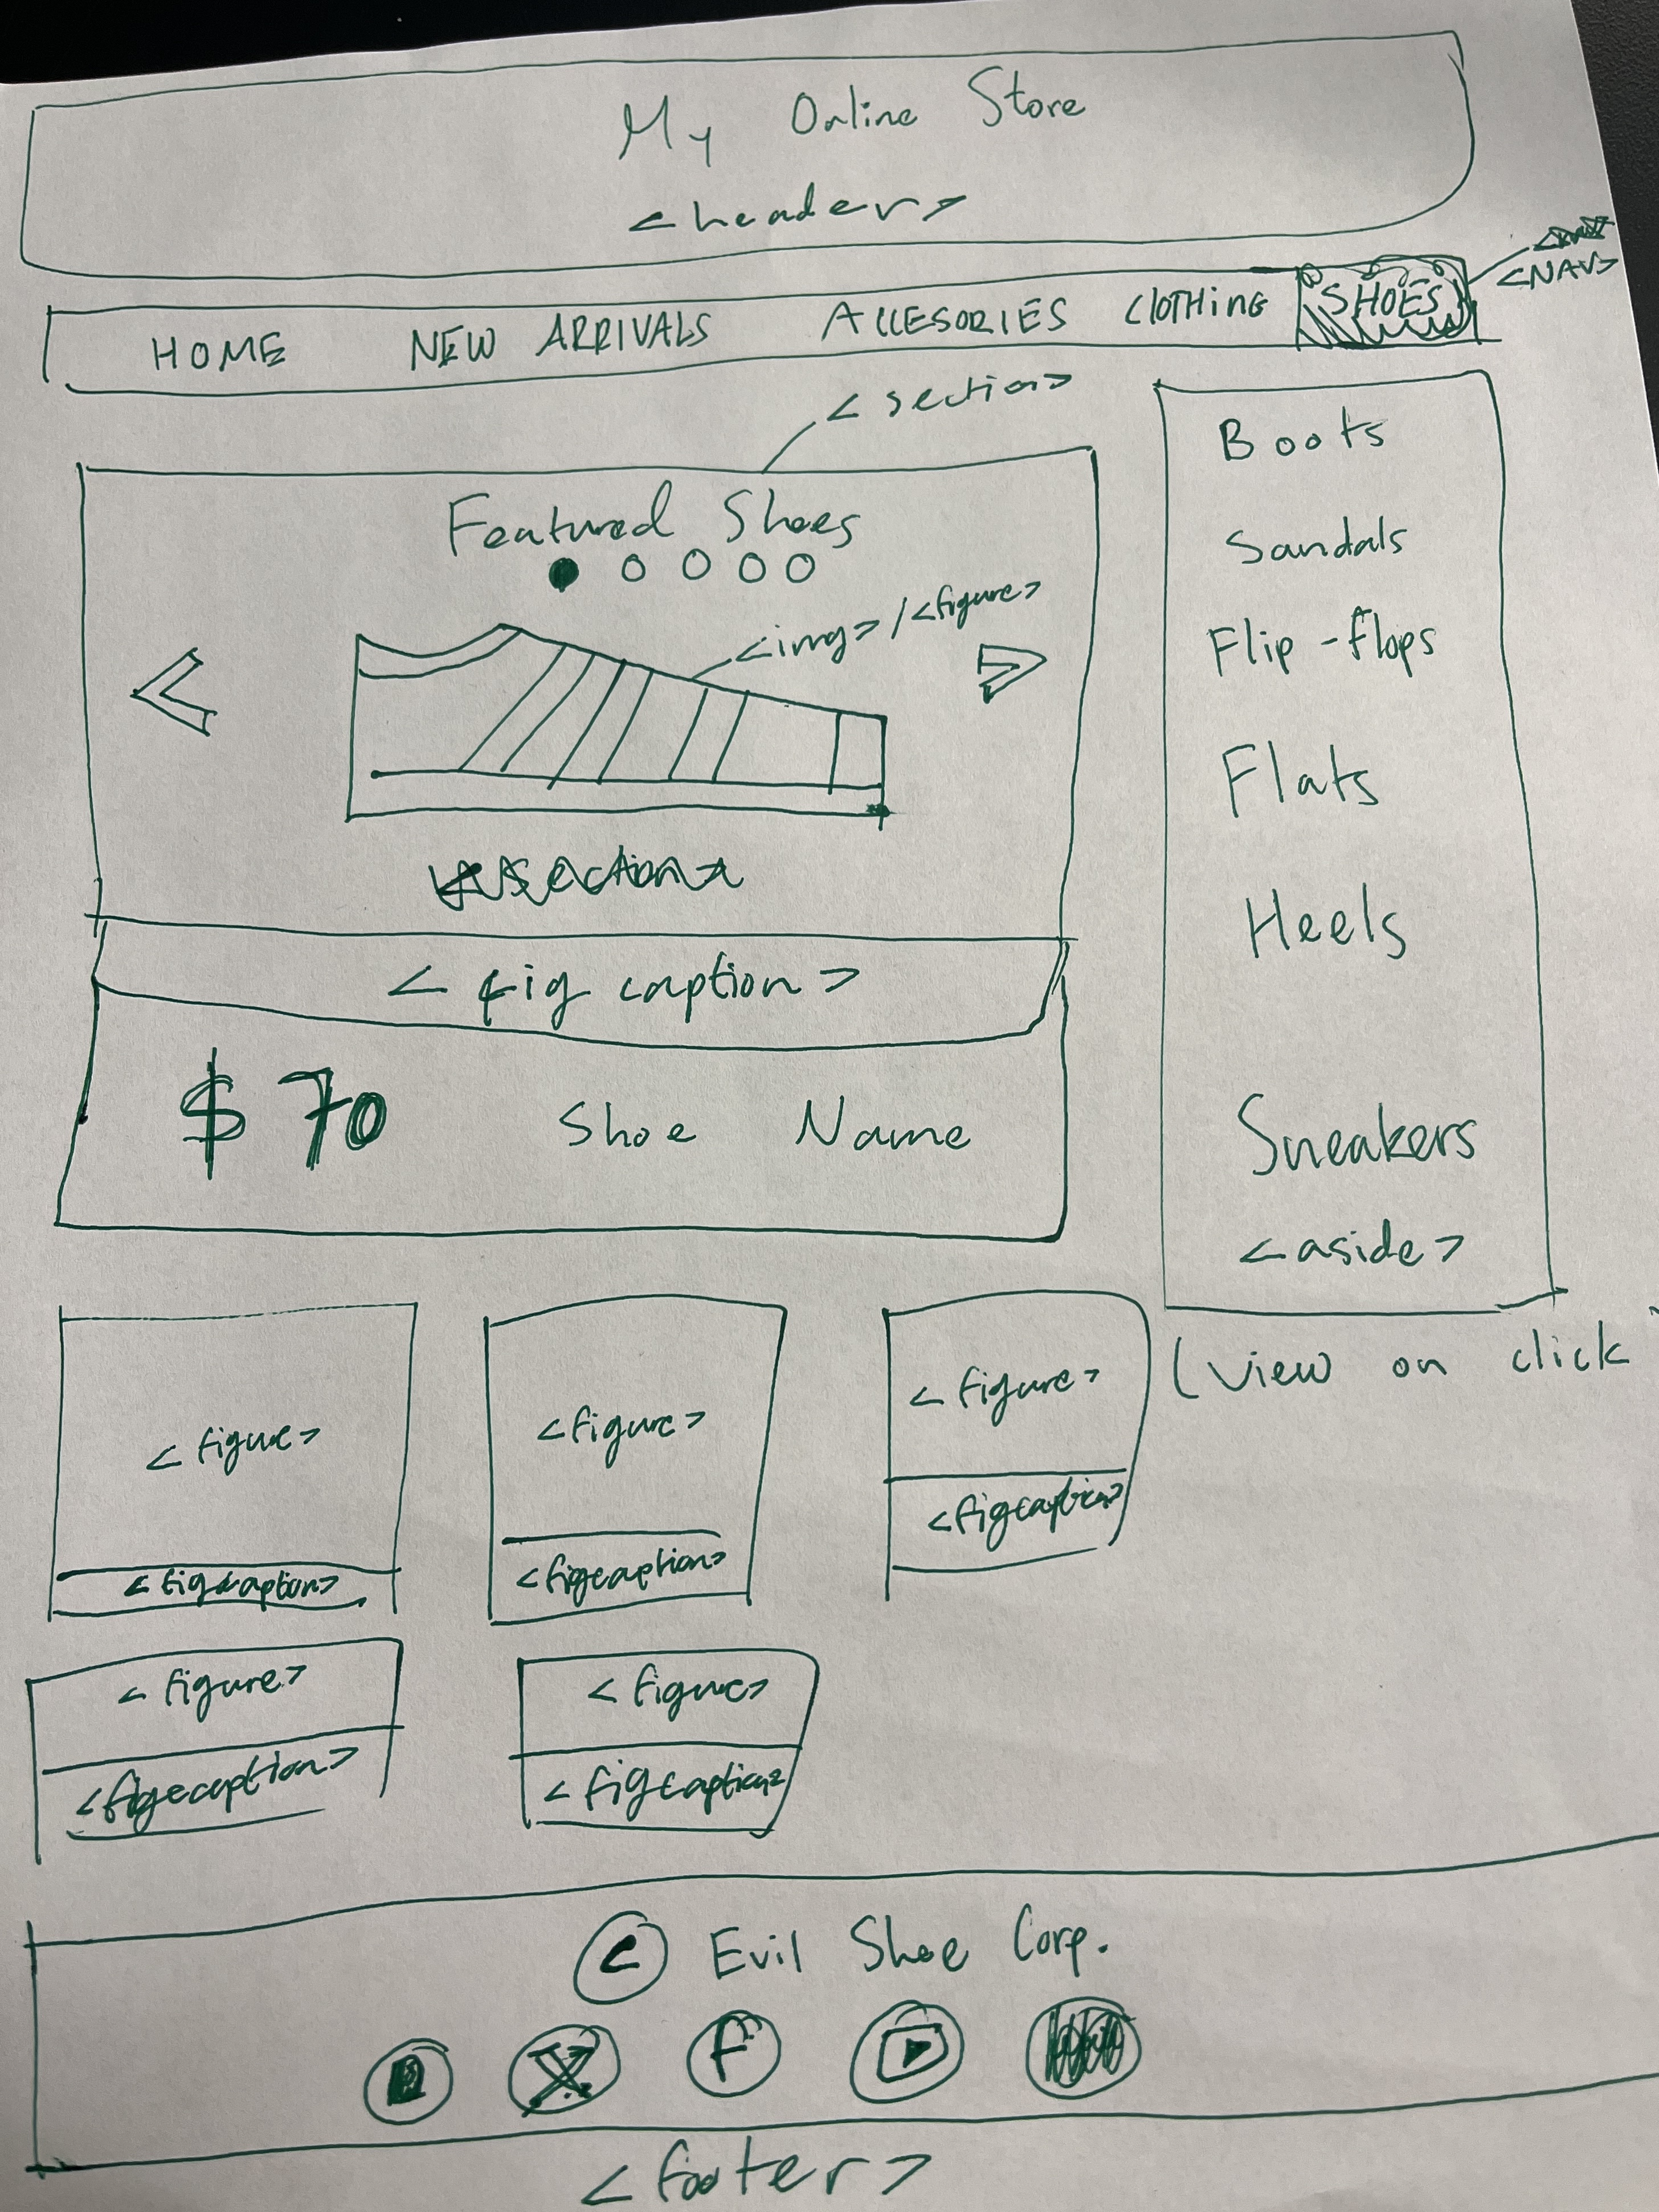 My Online Store
<header>
HOME NEW ARRIVALS ACCESORIES CLOTHING SHOES
<NAV>
<section>
Featured Shoes
<img> / <figure>
<section>
<fig caption>
$ 70 Shoe Name
Boots
Sandals
Flip-flops
Flats
Heels
Sneakers
<aside>
(view on click
<figure>
<figcaption>
<figure>
<figcaption>
<figure>
<figcaption>
<figure>
<figcaption>
<figure>
<figcaption>
© Evil Shoe Corp.
X f
<footer>